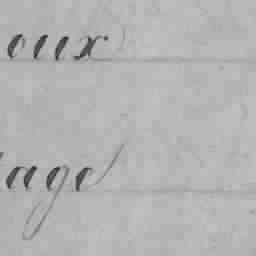 oux
age